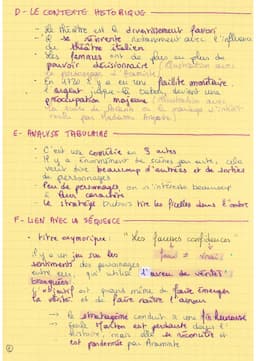 D - LE CONTEXTE HISTORIQUE
- Le théâtre est le divertissement favori
- Il se réinvente notamment avec l'influence
du théâtre italien
- Les femmes ont de plus en plus de
pouvoir décisionnaire (illustration avec
le personnage d'Araminte)
- En 1720 il y a eu une faillite monétaire.
L'argent devient une
préoccupation majeure (illustration avec
de Dubois et le mariage d'intérêt
voulu par Madame Argante)
E - ANALYSE TABULAIRE
- C'est une comédie en 3 actes
- Il y a énormément de scènes par acte, cela
veut dire beaucoup d'entrées et de sorties
de personnages
- Peu de personnages → on s'intéresse beaucoup
à leur caractère
- Le stratège Dubois tire les ficelles dans l'ombre
F - LIEN AVEC LA SÉQUENCE
• Titre oxymorique : "Les fausses confidences"
faux ≠ vrai
Il y a un jeu sur les
sentiments des personnages
entre eux, qui utilise l'aveu de vérités
L'objectif est quand même de faire émerger
la vérité et de faire naître l'amour
→ Le stratagème conduit à une fin heureuse
→ Seule Marton est perdante dans l'
histoire, mais elle se réconcilie et
est pardonnée par Araminte